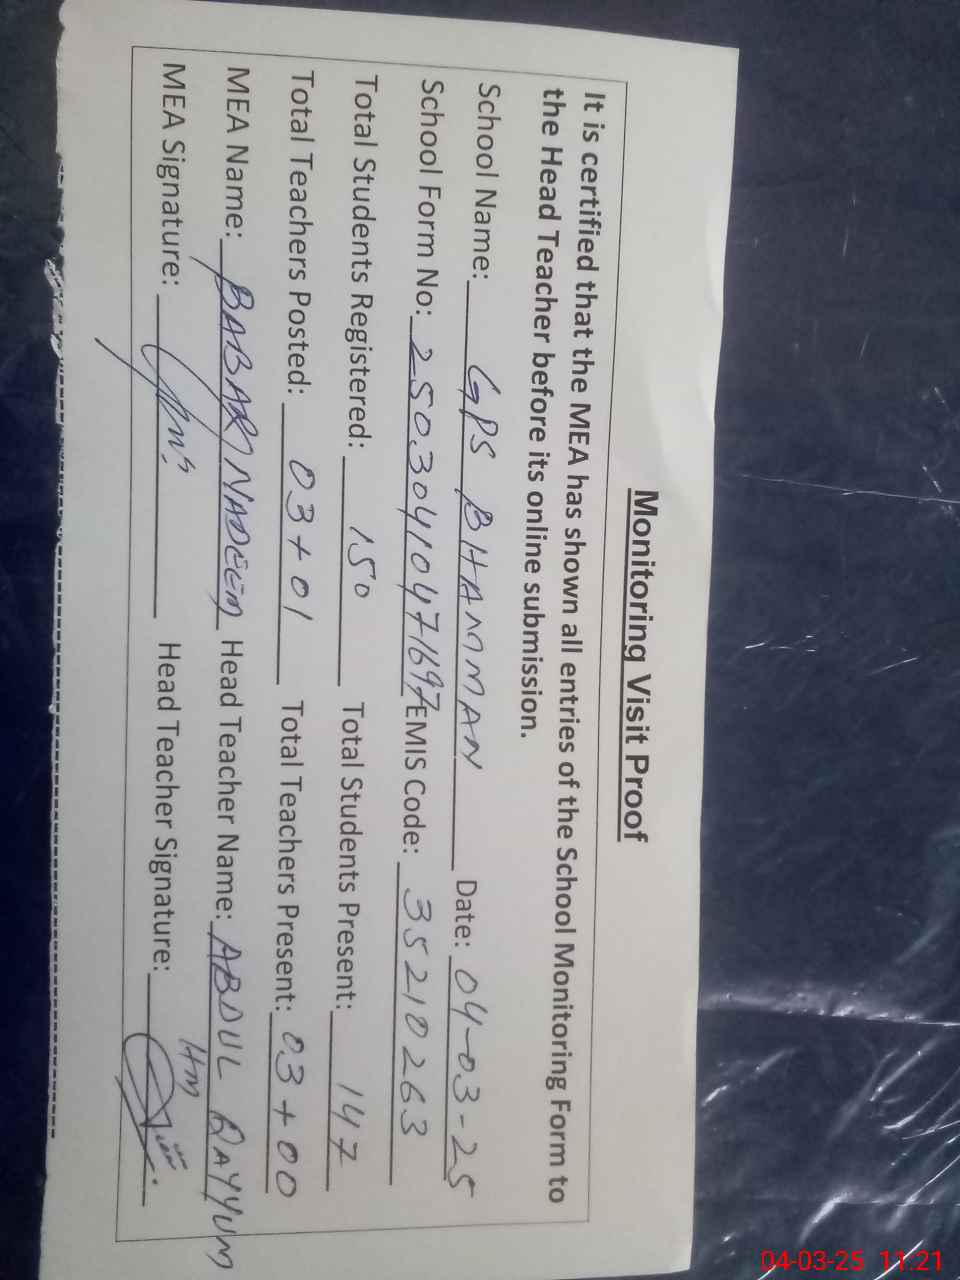 Monitoring Visit Proof
It is certified that the MEA has shown all entries of the School Monitoring Form to
the Head Teacher before its online submission.
School Name: GPS BHAMMAN Date: 04-03-25
School Form No: 25030410471697 EMIS Code: 35210263
Total Students Registered: 150 Total Students Present: 147
Total Teachers Posted: 03+01 Total Teachers Present: 03+00
MEA Name: BABAR NADEEM Head Teacher Name: ABDUL QAYYUM
HM
MEA Signature: Head Teacher Signature:
04-03-25 11:21